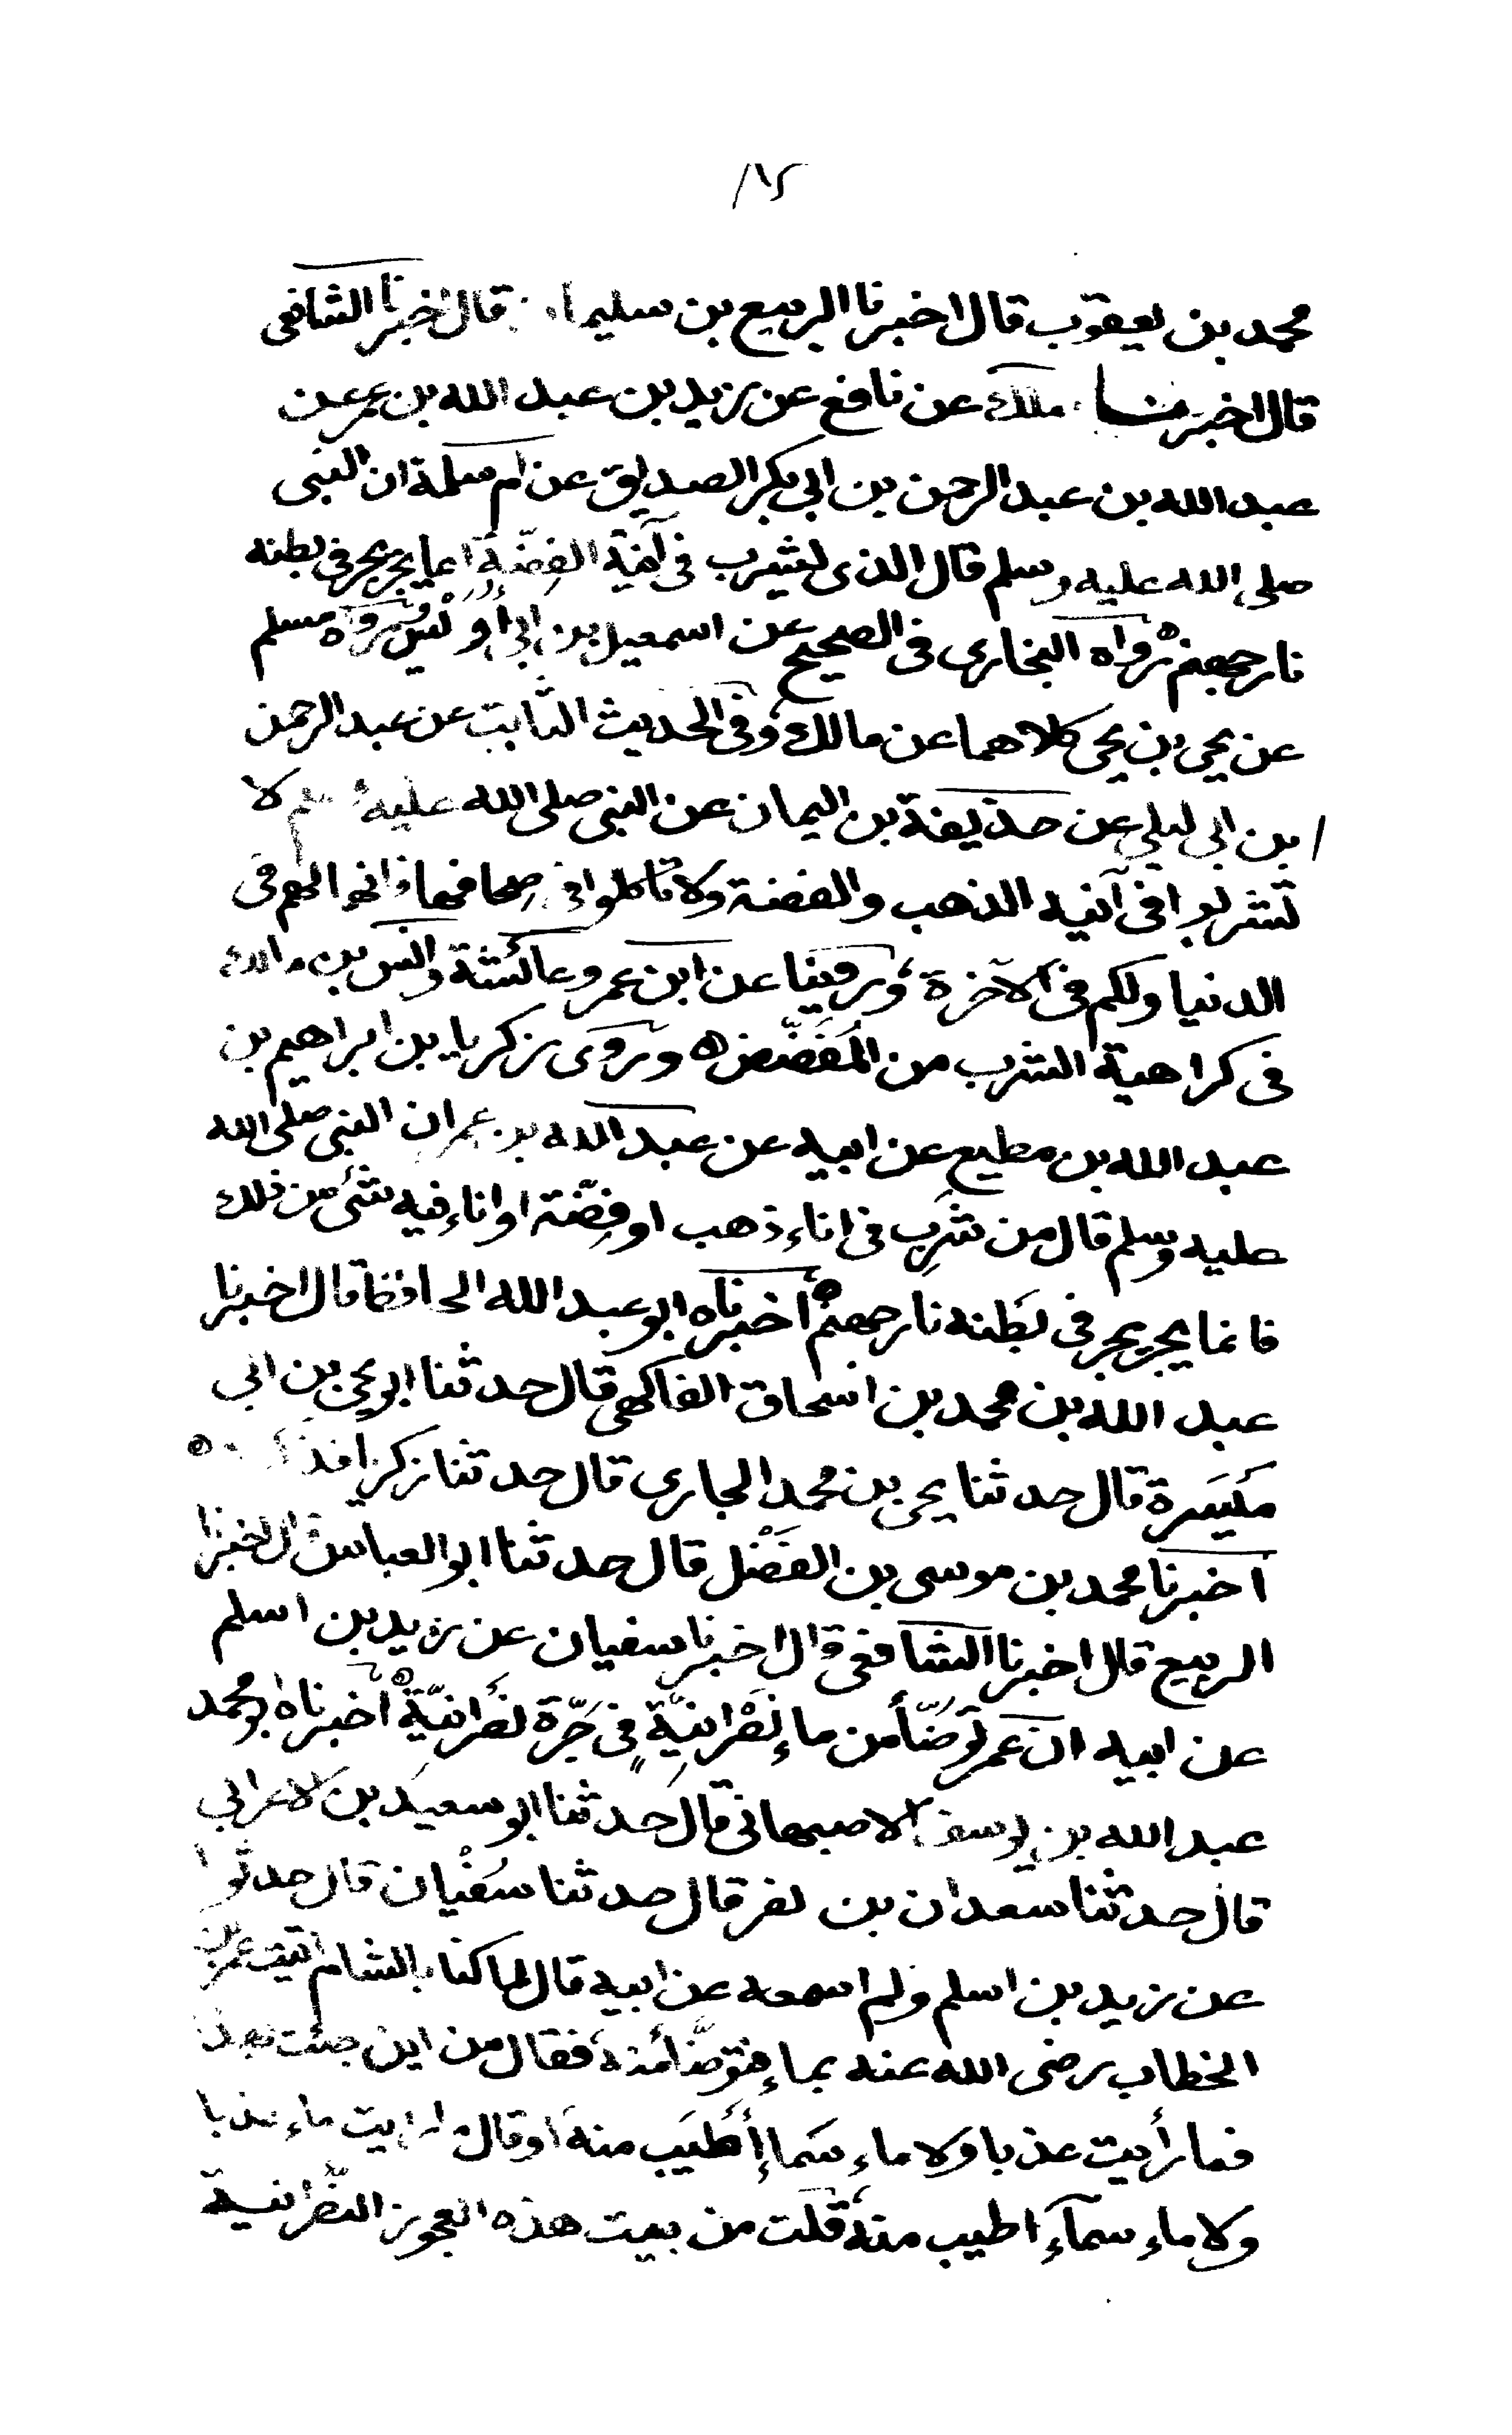 محمد بن يعقوب قال اخبرنا الربيع بن سليمان قال اخبرنا الشافعى
قال اخبرنا ملك عن نافع عن زيد بن عبد الله بن عمر عن
عبد الله بن عبد الرحمن بن ابى بكر الصديق عن ام سلمة ان النبى
صلى الله عليه وسلم قال الذى يشرب فى آنية الفِضّة انما يجرجر فى بطنه
نار جهنم رواه البخارى فى الصحيح عن اسمعيل بن ابى اُوَيْس ورواه مسلم
عن يحيى بن يحيى كلاهما عن مالك وفى الحديث الثابت عن عبد الرحمن
بن ابى ليلى عن حذيفة بن اليمان عن النبى صلى الله عليه وسلم لا
تشربوا فى آنيه الذهب والفضة ولا تاكلوا فى صِحافها فانها لهم فى
الدنيا ولكم فى الآخرة وروينا عن ابن عمر وعائشة وانس بن مالك
فى كراهية الشرب من المُفَضَّض وروى زكريا بن ابراهيم بن
عبد الله بن مطيع عن ابيه عن عبد الله بن عمر ان النبى صلى الله
عليه وسلم قال من شَرِب فى اناء ذهب او فِضّة او اناء فيه شئ من ذلك
فانما يجرجر فى بَطنه نار جهنم أخبرناه ابو عبد الله الحافظ قال اخبرنا
عبد الله بن محمد بن اسحاق الفاكهى قال حدثنا ابو يحيى بن ابى
مَيسَرة قال حدثنا يحيى بن محمد الجارى قال حدثنا زكريا فذكره
أخبرنا محمد بن موسى بن الفَضْل قال حدثنا ابو العباس قال اخبرنا
الربيع قال اخبرنا الشافعى قال اخبرنا سفيان عن زيد بن اسلم
عن ابيه انّ عمر تَوضّأ من ماءِ نَصْرانيّةٍ فى جَرّة نَصْرانيّة أخبرناه ابو محمد
عبد الله بن يوسف الاصبهانى قال حَدثنا ابو سعيد بن الاعرابى
قال حدثنا سعدان بن نصر قال حدثنا سُفْيان قال حدثونا
عن زيد بن اسلم ولم اسمعه عن ابيه قال لما كنا بالشام اتيت عمر بن
الخطاب رضى الله عنه بماءٍ فتوضّأ منه فقال من اين جئت بهذا
فما رأيت عذبا ولا ماء سَماءٍ أَطْيَب منه او قال ما رايت ماء عذبا
ولا ماءِ سمآءٍ اطيب منه قلت من بيت هذه العجوز النَّصْرانية